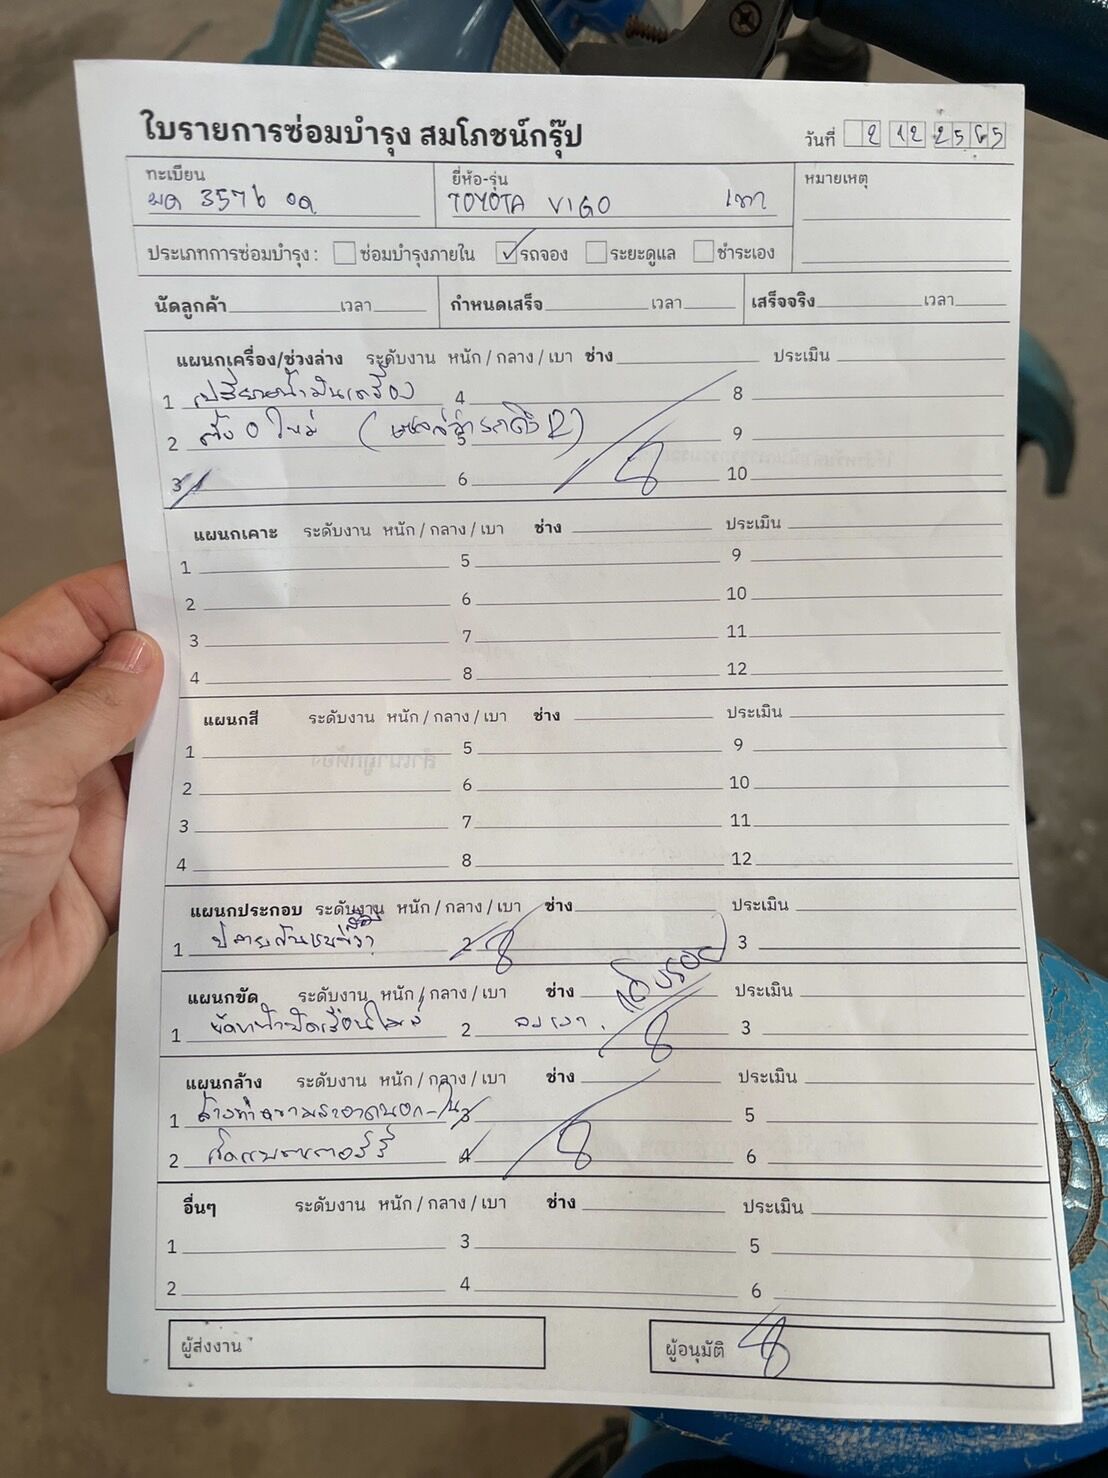 ใบรายการซ่อมบำรุง สมโภชน์กรุ๊ป
วันที่ 2 12 2565
ทะเบียน ยี่ห้อ-รุ่น หมายเหตุ
ผด 3576 TOYOTA VIGO เทา
ประเภทการซ่อมบำรุง : ซ่อมบำรุงภายใน ✓ รถจอง ระยะดูแล ชำระเอง
นัดลูกค้า เวลา กำหนดเสร็จ เวลา เสร็จจริง เวลา
แผนกเครื่อง/ช่วงล่าง ระดับงาน หนัก / กลาง / เบา ช่าง ประเมิน
1 เปลี่ยนน้ำมันเครื่อง 4 8
2 ตั้ง 0 ใหม่ 5 9
3 6 10
แผนกเคาะ ระดับงาน หนัก / กลาง / เบา ช่าง ประเมิน
1 5 9
2 6 10
3 7 11
4 8 12
แผนกสี ระดับงาน หนัก / กลาง / เบา ช่าง ประเมิน
1 5 9
2 6 10
3 7 11
4 8 12
แผนกประกอบ ระดับงาน หนัก / กลาง / เบา ช่าง ประเมิน
1 2 3
แผนกขัด ระดับงาน หนัก / กลาง / เบา ช่าง ประเมิน
1 2 ลงเงา เก็บรอย 3
แผนกล้าง ระดับงาน หนัก / กลาง / เบา ช่าง ประเมิน
1 ล้างทำความสะอาดนอก-ใน 3 5
2 4 6
อื่นๆ ระดับงาน หนัก / กลาง / เบา ช่าง ประเมิน
1 3 5
2 4 6
ผู้ส่งงาน ผู้อนุมัติ